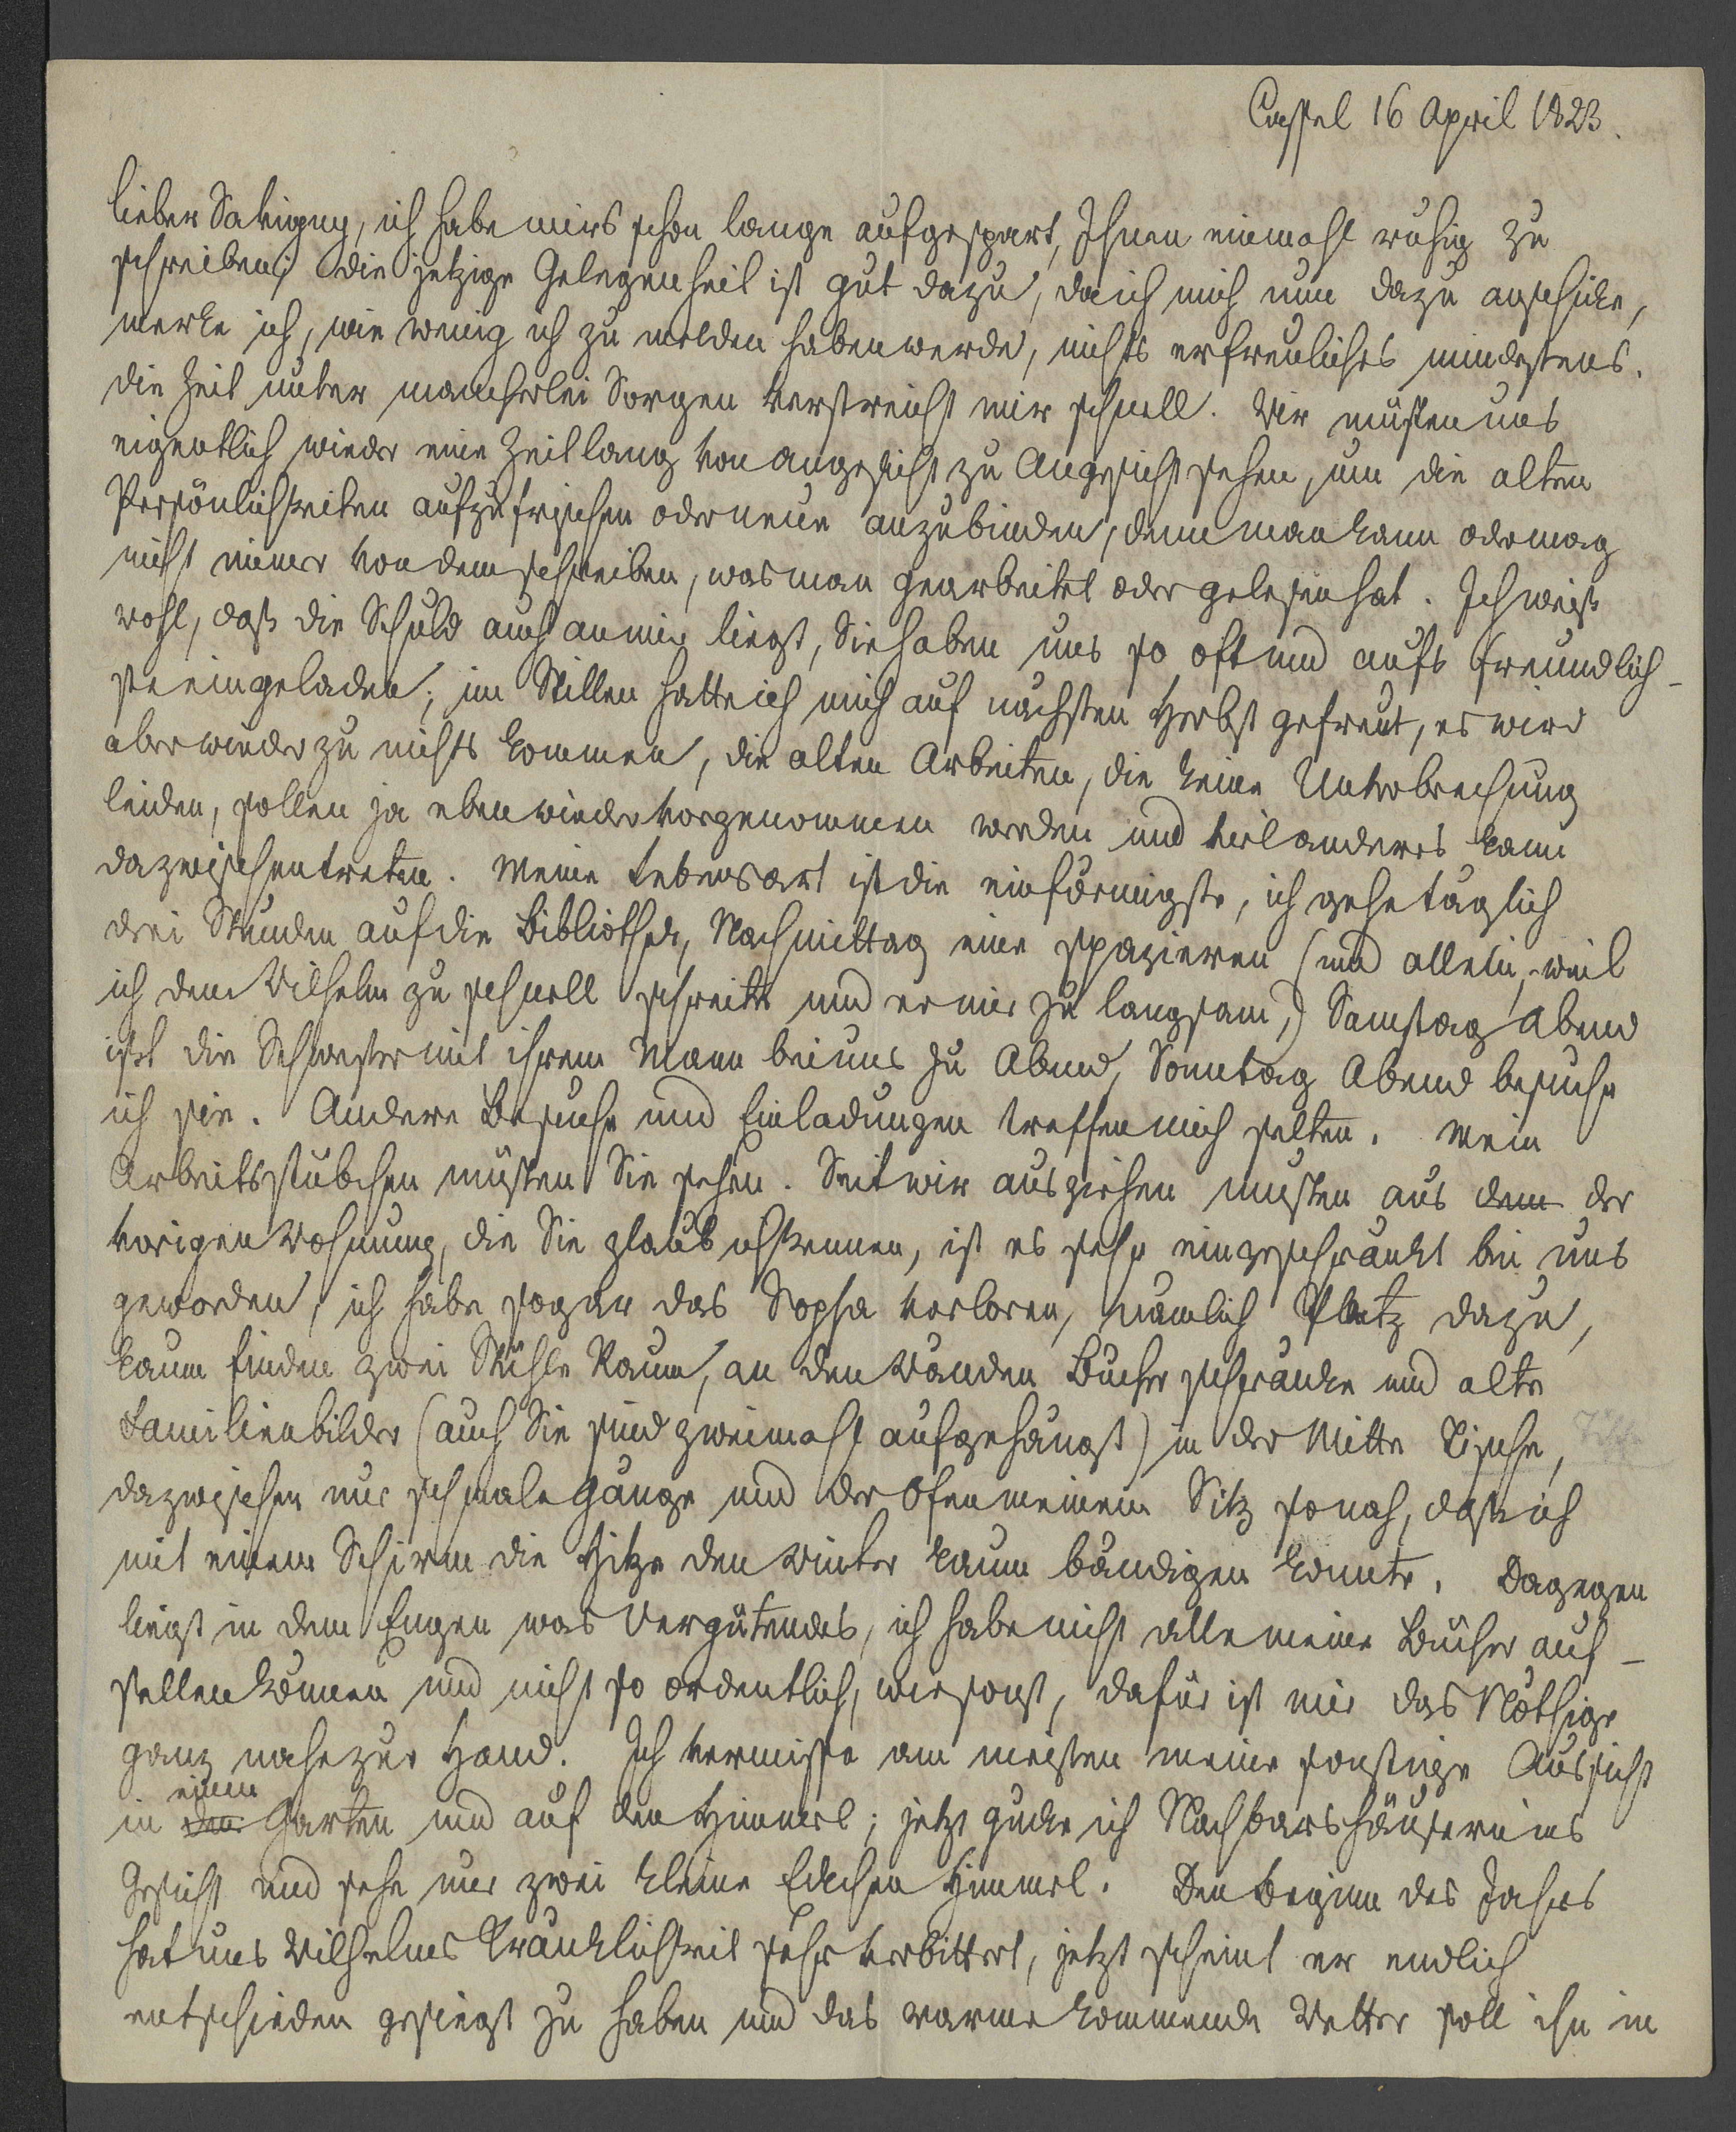 Cassel 16 April 1823.
lieber Savigny, ich habe mirs schon lange aufgespart, Ihnen einmahl ruhig zu
schreiben; die jetzige Gelegenheit ist gut dazu, da ich mich nun dazu anschicke,
merke ich, wie wenig ich zu melden haben werde, nichts erfreuliches mindestens.
die Zeit unter mancherlei Sorgen verstreicht mir schnell. Wir müsten uns
eigentlich wieder eine Zeitlang von angesicht zu Angesicht sehen, um die alten
Persönlichkeiten aufzufrischen oder neue anzubinden, denn man kann oder mag
nicht immer von dem schreiben, was man gearbeitet oder gelesen hat. Ich weiß
wohl, daß die Schuld auch an mir liegt, Sie haben uns so oft und aufs freundlich-
ste eingeladen; im Stillen hatte ich mich auf nächsten Herbst gefreut, es wird
aber wieder zu nichts kommen, die alten Arbeiten, die keine Unterbrechung
leiden, sollen ja eben wieder vorgenommen werden und viel anderes kann
dazwischentreten. Meine Lebensart ist die einförmigste, ich gehe täglich
drei Stunden auf die Bibliothek, Nachmittag eine spazieren (und allein, weil
ich dem Wilhelm zu schnell schreite und er mir zu langsam,) Samstag Abend
ißt die Schwester mit ihrem Mann bei uns zu Abend, Sonntag Abend besuche
ich sie. Andere Besuche und Einladungen treffen mich selten. Mein
Arbeitsstübchen müsten Sie sehen. Seit wir ausziehen musten aus dem der
vorigen Wohnung, die Sie glaub ich kennen, ist es sehr eingeschränkt bei uns
geworden, ich habe sogar das Sopha verloren, nämlich Platz dazu,
kaum finden zwei Stühle Raum, an den Wänden Bücherschränke und alte
Familienbilder (auch Sie sind zweimahl aufgehängt) in der Mitte Tische,
dazwischen nur schmale Gänge und der Ofen meinem Sitz so nah, daß ich
mit einem Schirm die Hitze den Winter kaum bändigen konnte. Dagegen
liegt in dem Engen was Vergütendes, ich habe nicht alle meine Bücher auf-
stellen können und nicht so ordentlich, wie sonst, dafür ist mir das Nöthige
ganz nahe zur Hand. Ich vermisse am meisten meine sonstige Aussicht
einen
in den Garten und auf den Himmel; jetzt gucke ich Nachbarshäusern ins
Gesicht und sehe nur zwei kleine Eckchen Himmel. Den Beginn des Jahrs
hat uns Wilhelms Kränklichkeit sehr verbittert, jetzt scheint er endlich
entschieden gesiegt zu haben und das warme kommende Wetter soll ihn in